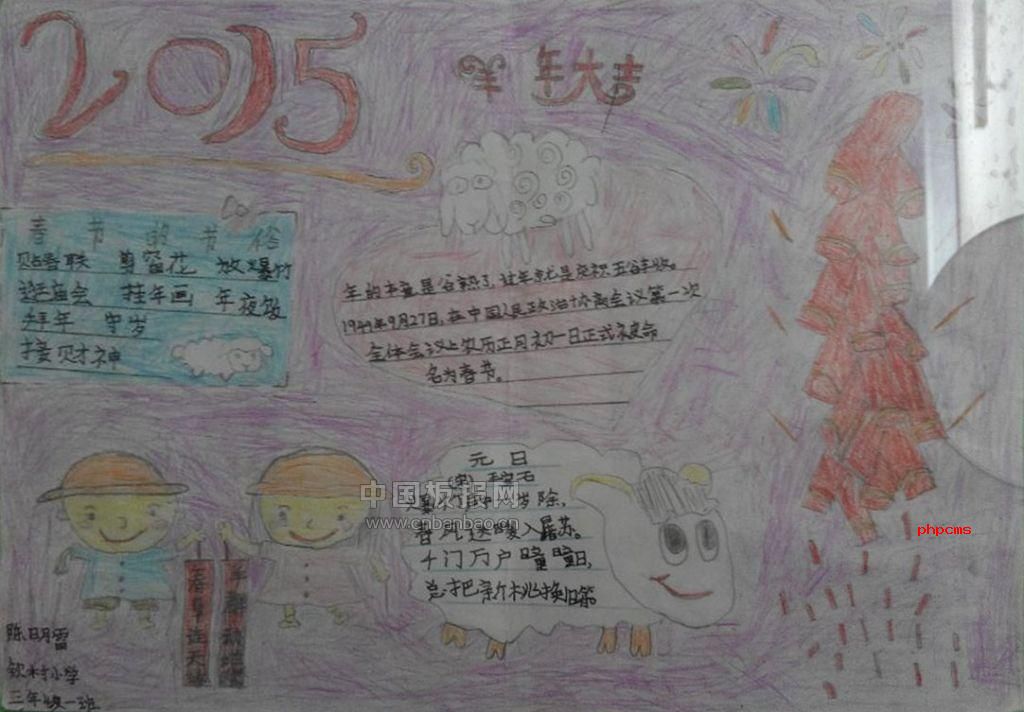 2015
羊 年大吉
春节的节俗
贴春联 剪窗花 放爆竹
逛庙会 挂年画 年夜饭
拜年 守岁
接财神
年的本意是谷熟了,过年就是庆祝五谷丰收。
1949年9月27日,在中国人民政治协商会议第一次
全体会议上农历正月初一日正式被命
名为春节。
元日
(宋) 王安石
爆竹声中一岁除,
春风送暖入屠苏。
千门万户曈曈日,
总把新桃换旧符。
中国板报网
www.cnbanbao.cn
phpcms
钦村小学
三年级一班